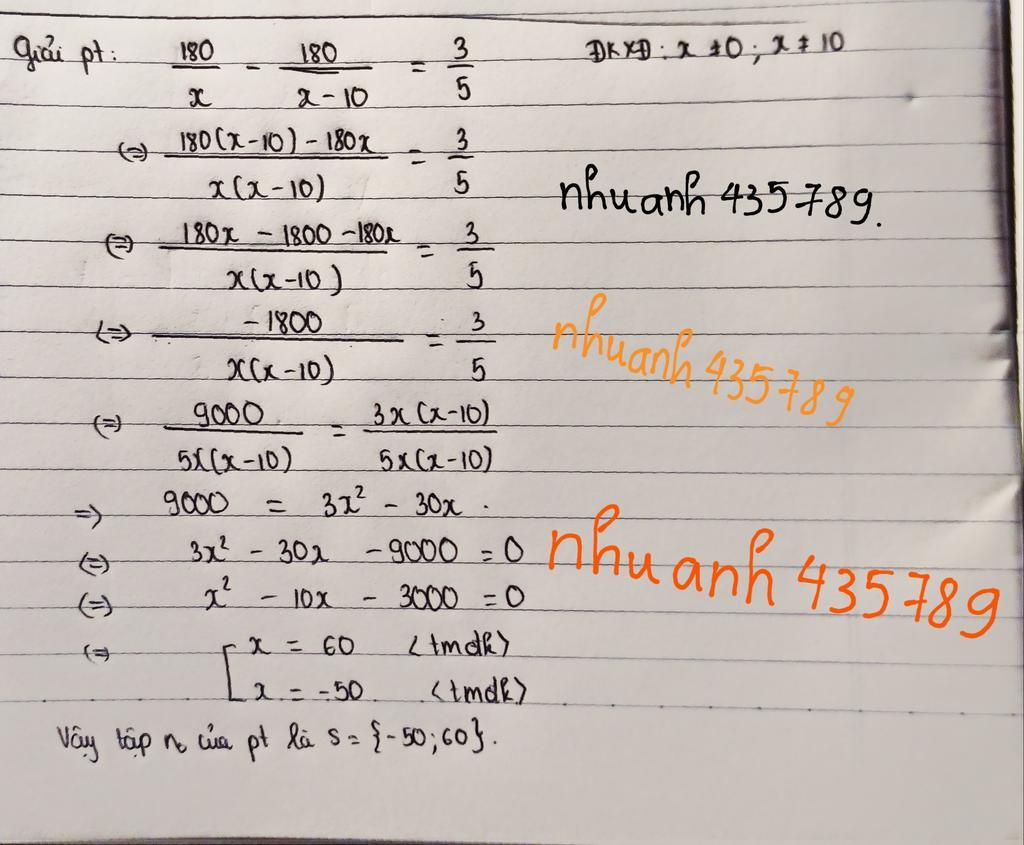 Giải pt: 180/x - 180/(x-10) = 3/5 ĐKXĐ: x ≠ 0; x ≠ 10
(=) (180(x-10) - 180x)/(x(x-10)) = 3/5
nhuanh 435789.
(=) (180x - 1800 - 180x)/(x(x-10)) = 3/5
(=) (-1800)/(x(x-10)) = 3/5
nhuanh 435789
(=) 9000/(5x(x-10)) = (3x(x-10))/(5x(x-10))
=) 9000 = 3x² - 30x.
(=) 3x² - 30x - 9000 = 0
nhuanh 435789
(=) x² - 10x - 3000 = 0
(=) [ x = 60 <tmđk>
x = -50 <tmđk>
Vậy tập n₀ của pt là S = {-50; 60}.